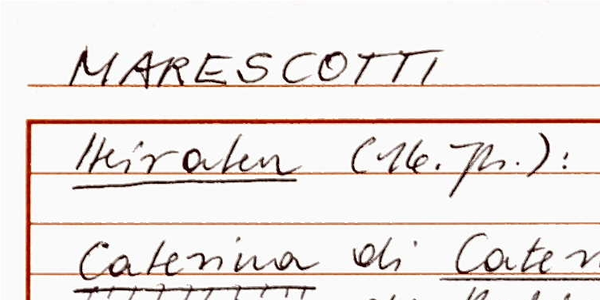 MARESCOTTI
Heiraten (16. Jh.):
Caterina di Cater